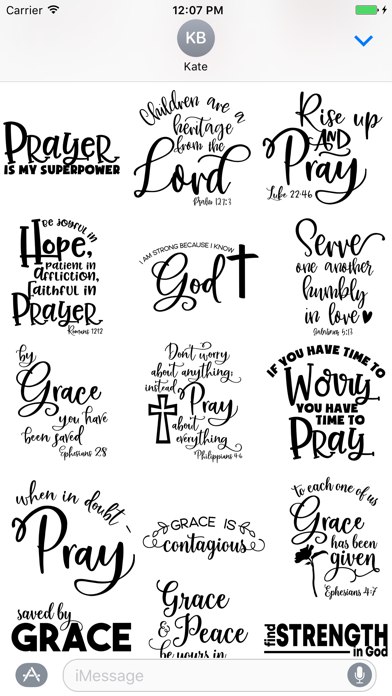 Carrier 12:07 PM
KB
Kate
PRAYER
IS MY SUPERPOWER
Children are a
heritage
from the
Lord
Psalm 127:3
Rise up
AND
Pray
Luke 22:46
BE JOYFUL IN
Hope,
PATIENT IN
AFFLICTION,
FAITHFUL IN
PRAYER
Romans 12:12
I AM STRONG BECAUSE I KNOW
God
Serve
one another
humbly
in love
Galatians 5:13
by
Grace
you have
been saved
Ephesians 2:8
Don't worry
about anything;
instead
Pray
about
everything
Philippians 4:6
IF YOU HAVE TIME TO
Worry
YOU HAVE
TIME TO
PRAY
when in doubt -
Pray
GRACE IS
contagious
to each one of us
Grace
has been
given
Ephesians 4:7
saved by
GRACE
Grace
& Peace
be yours in
find
STRENGTH
in God
iMessage